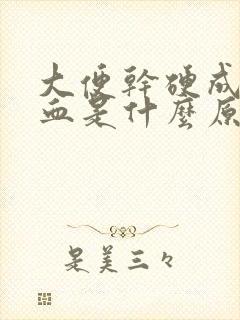 大便幹硬成
血是什麼原
是美三々